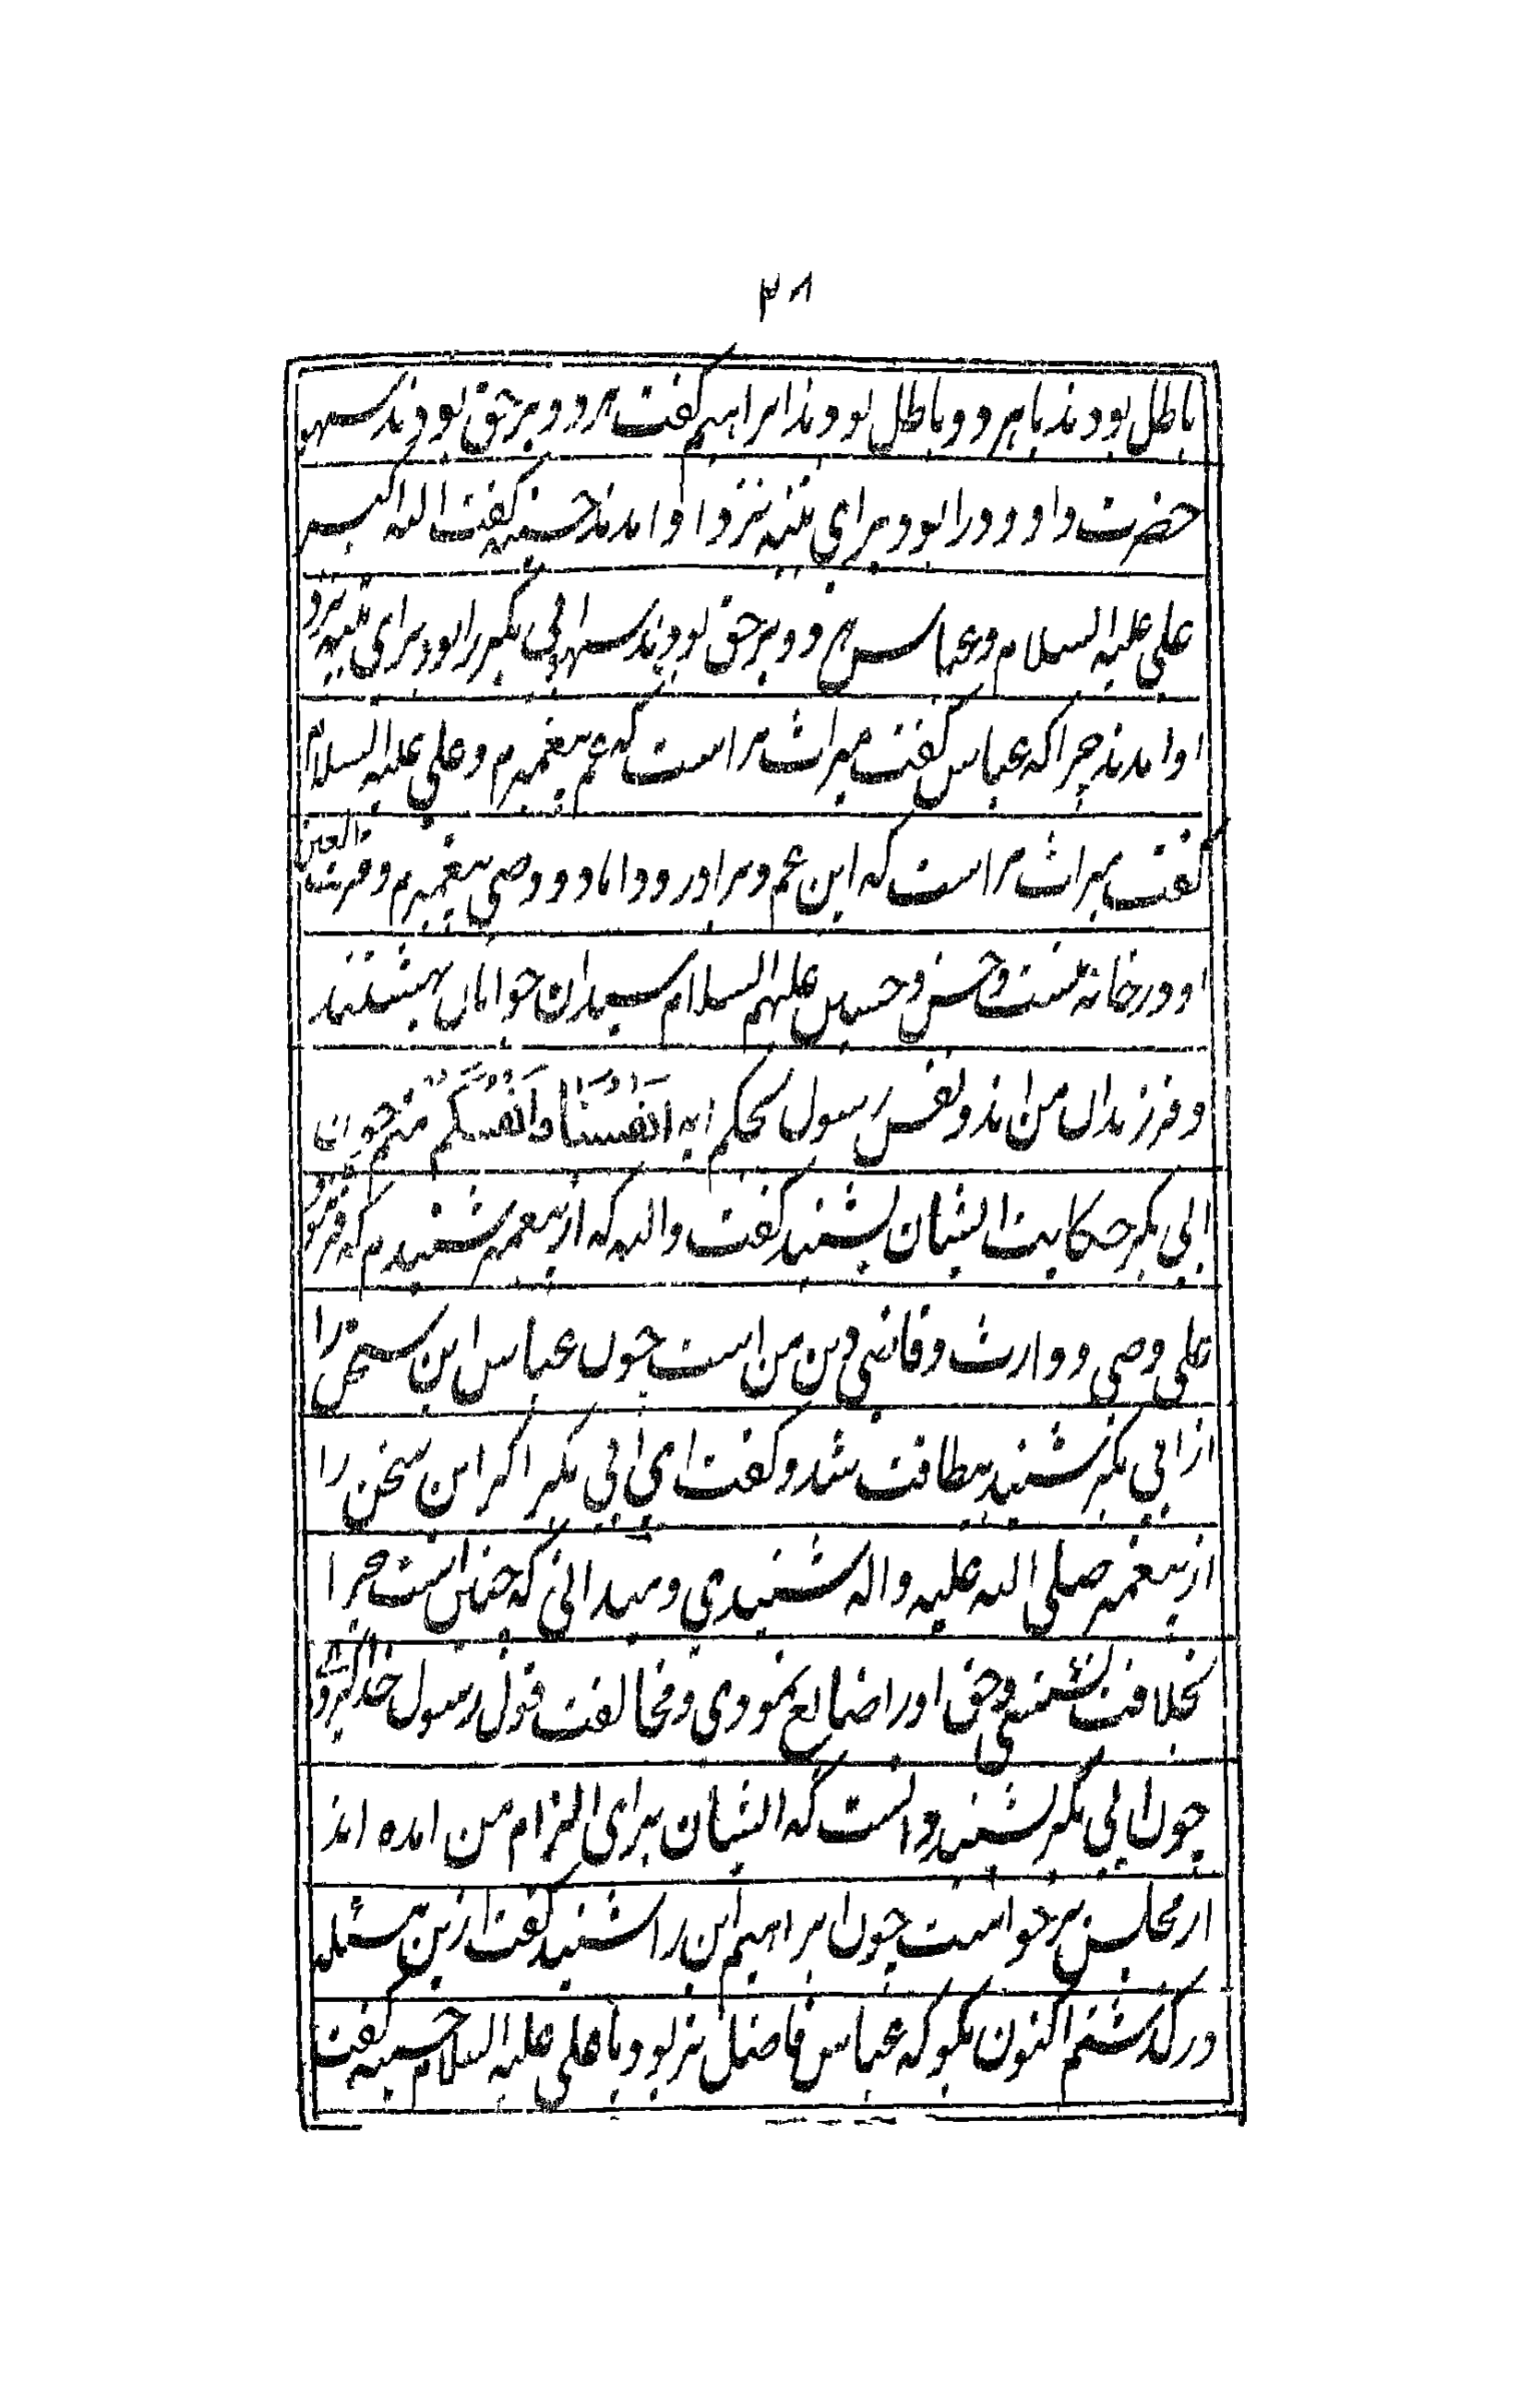 ۳۸
باطل بودند یا هر دو باطل بودند ابراهیم گفت هر دو بر حق بودند سهو
حضرت داوود را بود برای تنبه نزد او امدند حسنیه گفت الله اکبر
علی علیه السلام و عباس هر دو بر حق بودند سهو ابی بکر را بود برای تنبیه نزد
او امدند چرا که عباس گفت میراث مراست که عم پیغمبرم و علی علیه السلام
گفت میراث مراست که ابن عم و برادر و داماد و وصی پیغمبرم و قرت العین
او در خانه منست و حسن و حسین علیهم السلام سیدان جوانان بهشتند
و فرزندان من اند و نفس رسول بحکم ایه اَنفُسَنَا وَاَنفُسَکُم منم چون
ابی بکر حکایت ایشان بشنید گفت والله که از پیغمبر شنیدم که فرمود
علی وصی و وارث و قاضی دین من است چون عباس این سخن را
از ابی بکر شنید بیطاقت شد و گفت ای ابی بکر اگر این سخن را
از پیغمبر صلی الله علیه و اله شنیدی و میدانی که چنین است چرا
بخلافت نشستی و حق او را ضایع نمودی و مخالفت قول رسول خدا
چون ابی بکر بشنید دانست که ایشان برای الزام من امده اند
از مجلس برخواست چون ابراهیم این را شنید گفت ازین مسئله
درگذشتم اکنون بگو که عباس فاضل تر بود یا علی علیه السلام حسنیه گفت